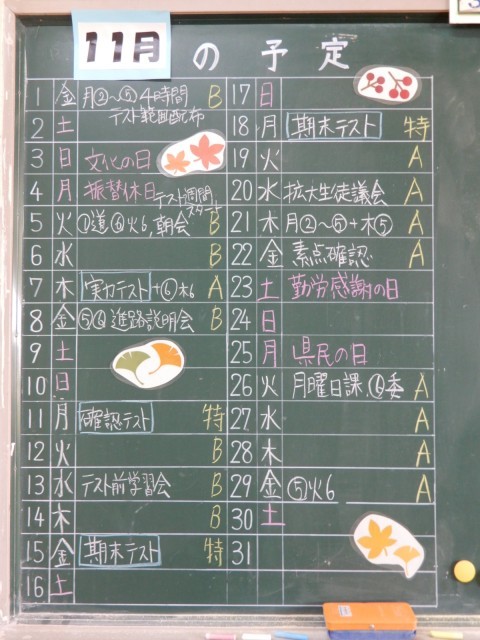 11月の予定
1 金 月②～⑤4時間 B
テスト範囲配布
2 土
3 日 文化の日
4 月 振替休日 テスト週間
スタート
5 火 ①道⑥火6,朝会 B
6 水 B
7 木 実力テスト+⑥木6 A
8 金 ⑤⑥進路説明会 B
9 土
10 日
11 月 確認テスト 特
12 火 B
13 水 テスト前学習会 B
14 木 B
15 金 期末テスト 特
16 土
17 日
18 月 期末テスト 特
19 火 A
20 水 拡大生徒議会 A
21 木 月②～⑤+木⑤ A
22 金 素点確認 A
23 土 勤労感謝の日
24 日
25 月 県民の日
26 火 月曜日課,⑥委 A
27 水 A
28 木 A
29 金 ⑤火6 A
30 土
31